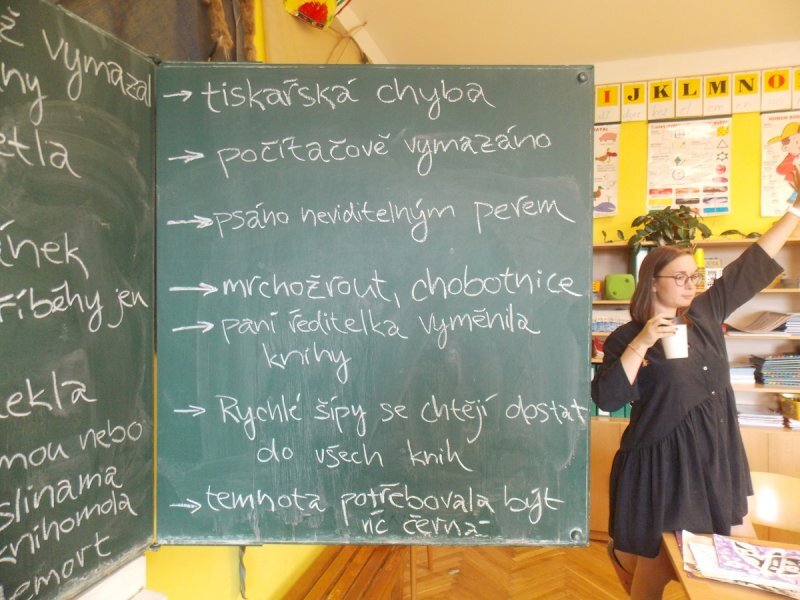 vymazal
ny
ětla
ínek
říběhy jen
ekla
mou nebo
slinama
knihomola
emort
→ tiskařská chyba
→ počítačově vymazáno
→ psáno neviditelným perem
→ mrchožrout, chobotnice
→ paní ředitelka vyměnila
knihy
→ Rychlé šípy se chtějí dostat
do všech knih
→ temnota potřebovala být
víc černá
I J K L M N O